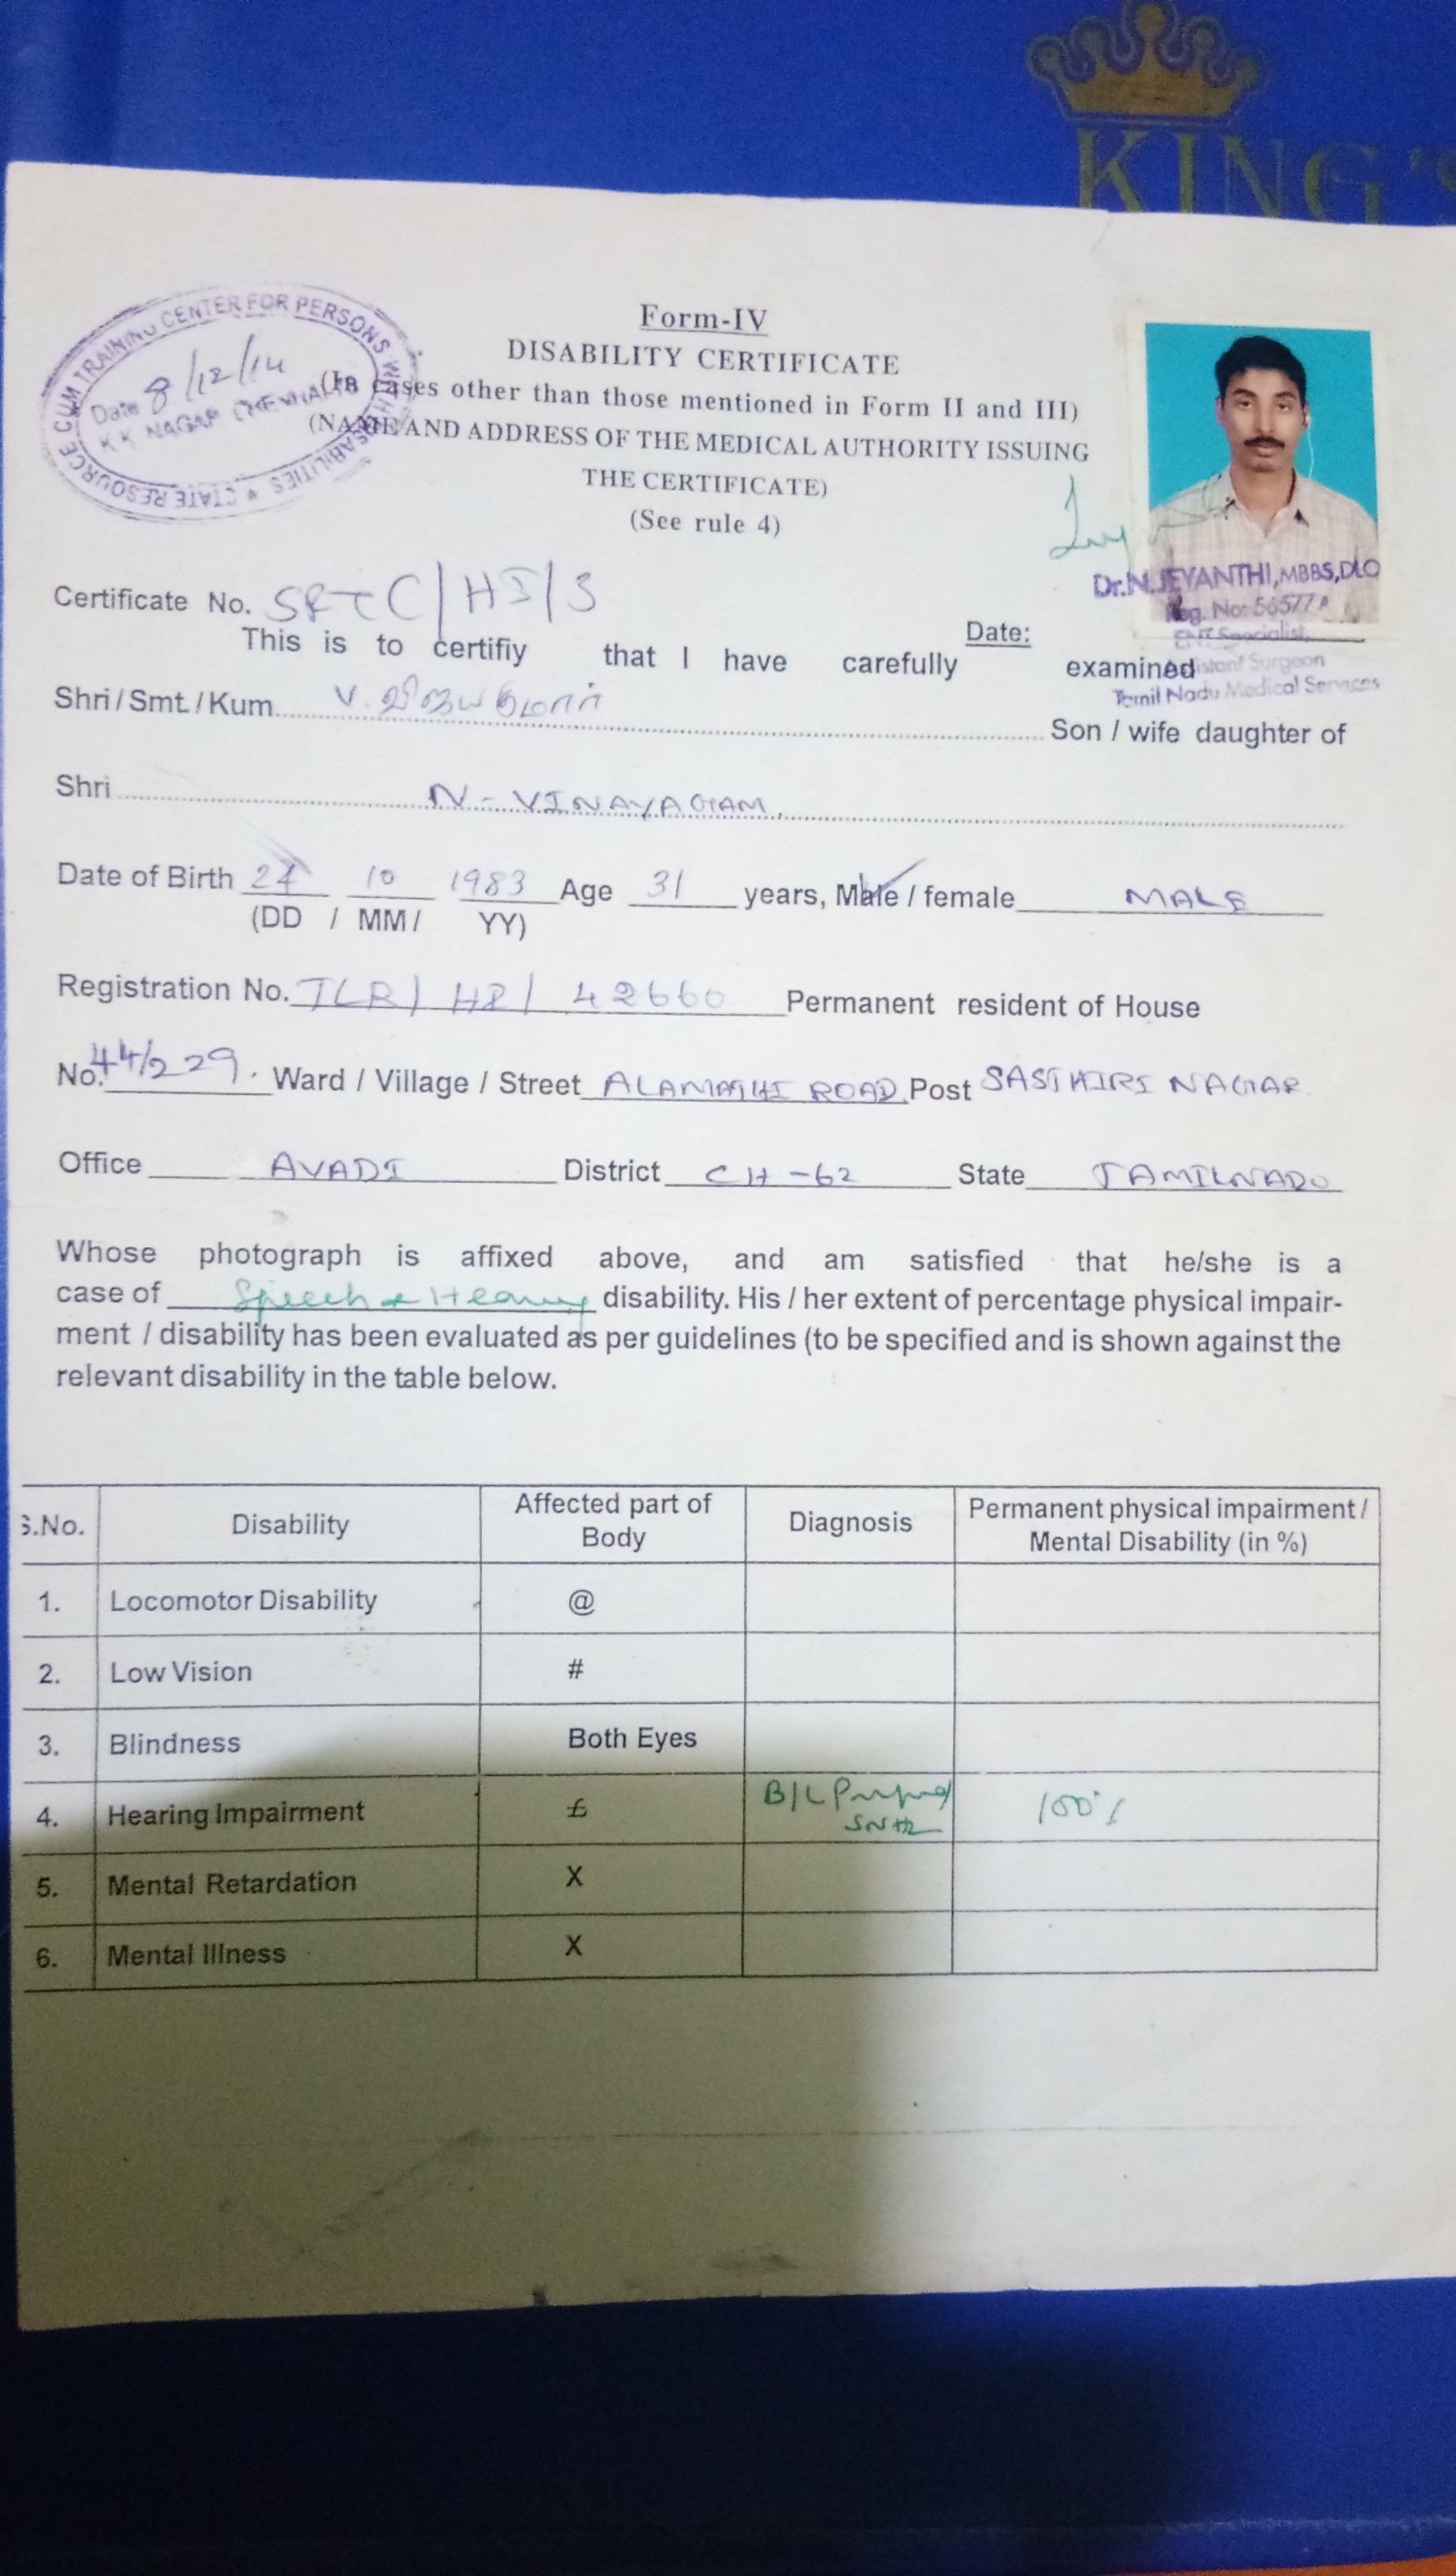 KING'S
STATE RESOURCE CUM TRAINING CENTER FOR PERSONS WITH DISABILITIES *
Date 8/12/14
K K NAGAR CHENNAI
Form-IV
DISABILITY CERTIFICATE
(In cases other than those mentioned in Form II and III)
(NAME AND ADDRESS OF THE MEDICAL AUTHORITY ISSUING
THE CERTIFICATE)
(See rule 4)
Dr.N.JEYANTHI,MBBS,DLO
Reg. No: 56577
ENT Specialist,
Assistant Surgeon
Tamil Nadu Medical Services
Certificate No. SRTC/HI/3
Date:
This is to certifiy that I have carefully examined
Shri / Smt. / Kum. V. விஜயகுமார் Son / wife daughter of
Shri N-VINAYAGAM.
Date of Birth 24 10 1983 Age 31 years, Male / female MALE
(DD / MM / YY)
Registration No. TLR/ HI/ 42660 Permanent resident of House
No. 44/229. Ward / Village / Street ALAMATHI ROAD, Post SASTHIRI NAGAR
Office AVADI District CH-62 State TAMILNADU
Whose photograph is affixed above, and am satisfied that he/she is a
case of Speech & Hearing disability. His / her extent of percentage physical impair-
ment / disability has been evaluated as per guidelines (to be specified and is shown against the
relevant disability in the table below.
S.No. Disability Affected part of Body Diagnosis Permanent physical impairment / Mental Disability (in %)
1. Locomotor Disability @
2. Low Vision #
3. Blindness Both Eyes
4. Hearing Impairment £ B/L Profound SNHL 100%
5. Mental Retardation X
6. Mental Illness X